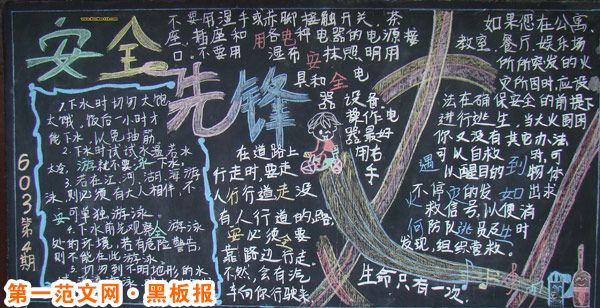 安全
先锋
603第4期
1.下水时切勿太饱
太饿，饭后一小时才
能下水，以免抽筋
2.下水时试试水温若水
太冷，游就不要泳
3.若在江、河、湖、海游
泳，则必须有大人相伴，不
安可单独游泳
4.下水前先观察全游泳
处的环境，若有危险警告，
则不能在此游泳。
5.切勿到不明地形的水
不要用湿手或赤脚接触开关、茶
座、插座和用各电种电器的电源接
口。不要用湿布安抹照明用
具和全电
器设备。
操作电
器最好
用右
手
在道路上
行走时，要走
人行行道走没
有人行道的路，
安必须要
靠路边行走。
不然，会有汽
车向你行驶来
生命只有一次
如果您在公寓、
教室、餐厅、娱乐场
所所突发的火
灾所困时，应设
法在确保安全的前提下
进行逃生，当大火围困
你又没有其它办法
遇可以自救时，可
以醒目的到物体
不停灾的发如出求
救信号，以便消
何防队逃员及生时
发现，组织营救。
第一范文网·黑板报